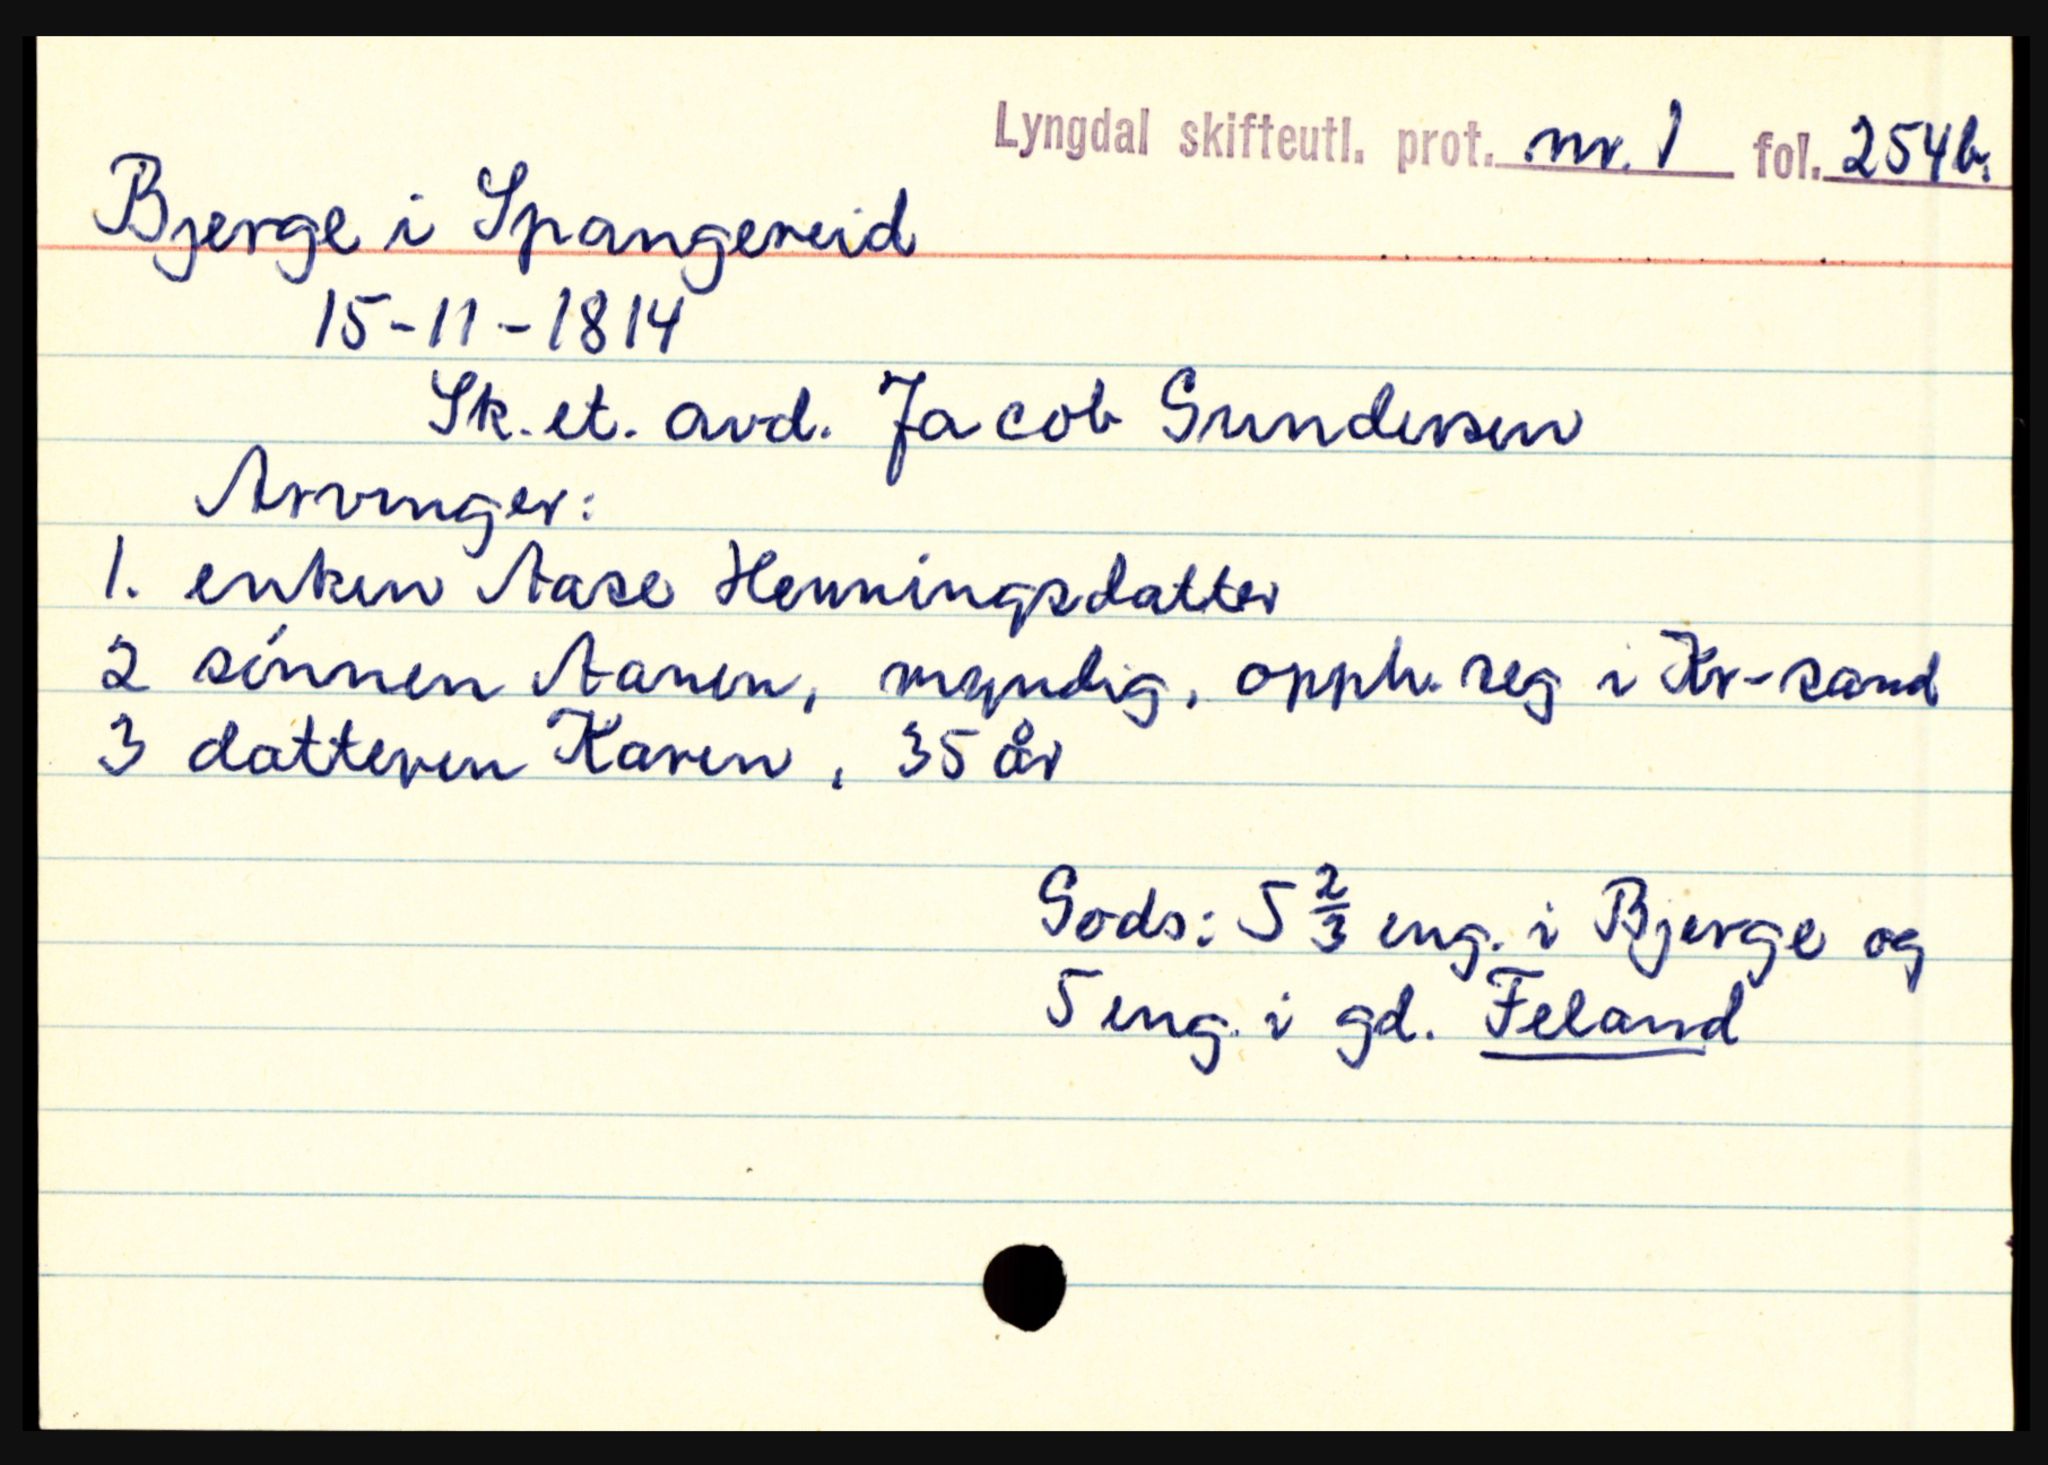 Lyngdal skifteutl. prot. nr. 1 fol. 254b.
Bjerge i Spangereid
15-11-1814
Sk. et. avd. Jacob Gundersen
Arvinger:
1. enken Aase Henningsdatter
2 sønnen Aanen, myndig, opph. seg i Kr-sand
3 datteren Karen, 35 år
Gods: 5 2/3 eng. i Bjerge og
5 eng. i gd. Feland